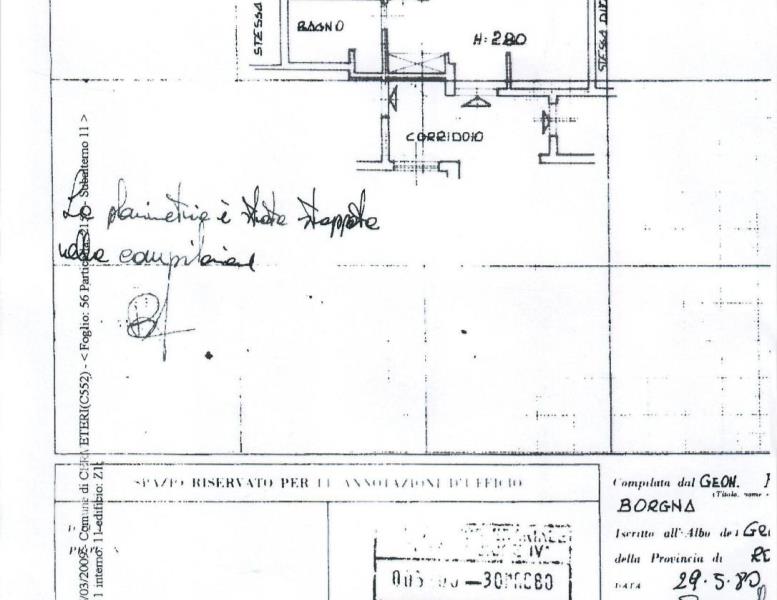 STESSA
BAGNO
H: 280
STESSA DIT
CORRIDOIO
La planimetria è stata strappata
nella compilazione
/03/2009 - Comune di CERVETERI(C552) - < Foglio: 56 Particella: Subalterno 11 >
1 interno: 11-edificio: Z1;
SPAZIO RISERVATO PER LE ANNOTAZIONI D'UFFICIO
Compilata dal GEOM.
(Titolo, nome
BORGNA
Iscritto all'Albo dei GE
della Provincia di RO
DATA 29.5.80